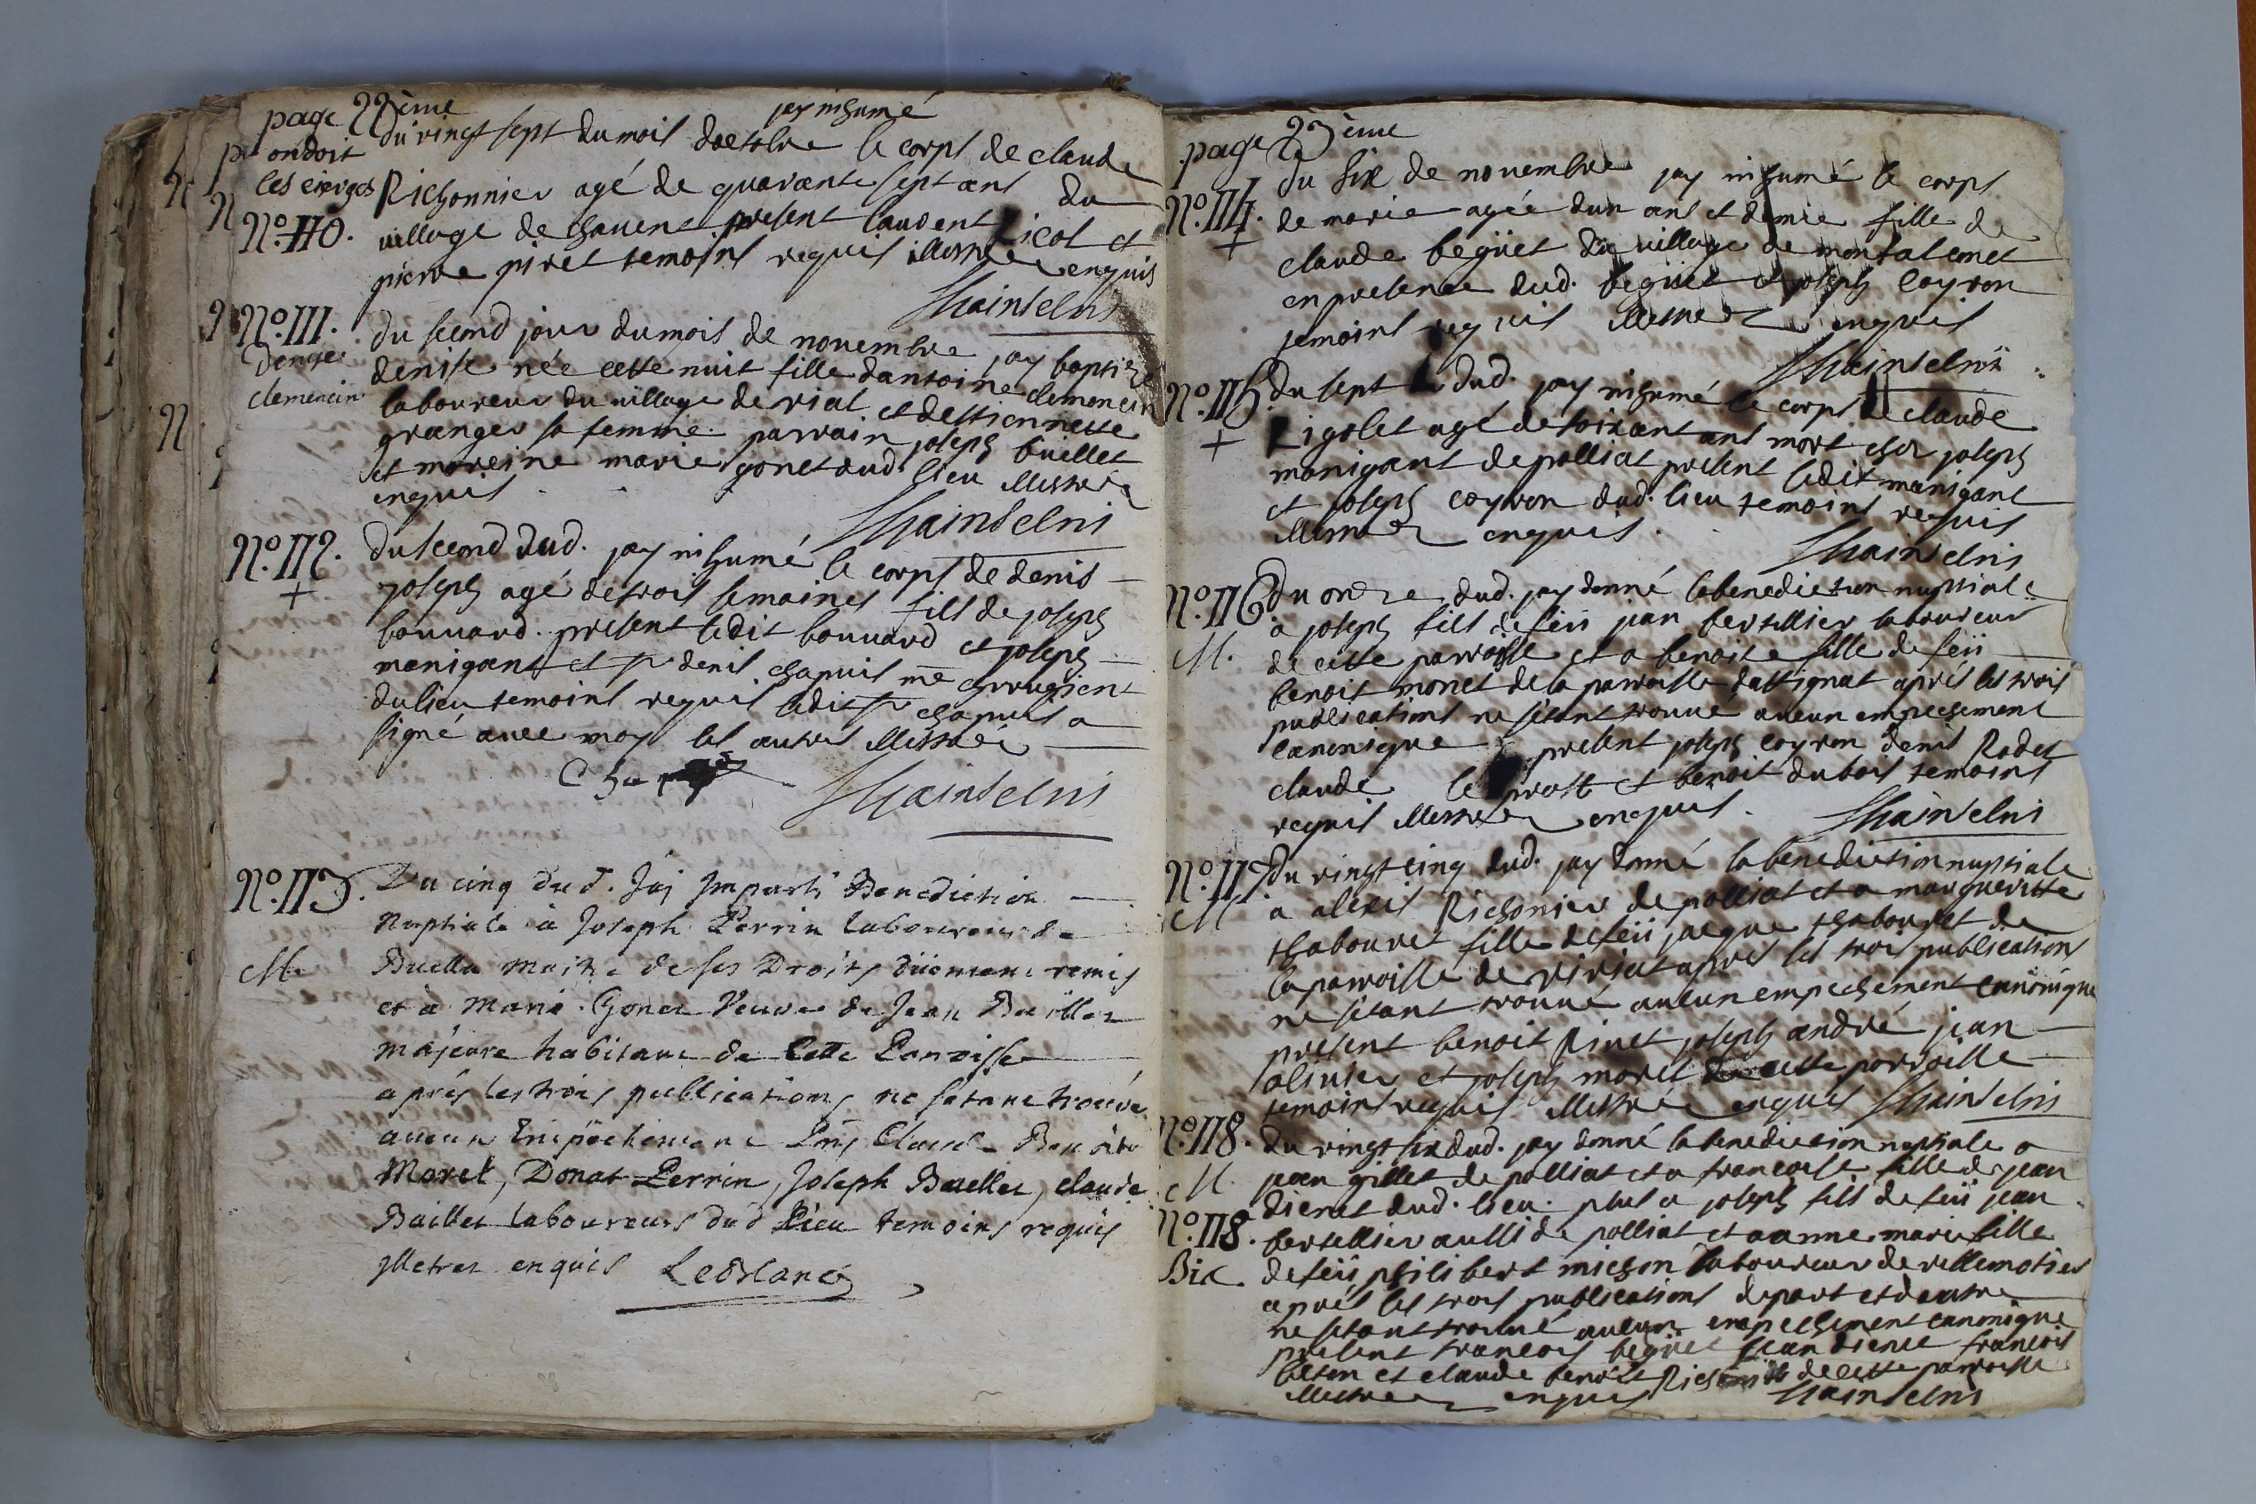 page 22ème
jay inhumé
du vingt sept du mois doctobre le corps de claude
on doit
les cierges
Richonnier agé de quarante sept ans du
No. 110.
village de chavent present laudent Ricol et
pierre piret temoins requis illettrez enquis
Chainselni
No. 111.
du second jour du mois de novembre jay baptizé
Denise
clemencin
denise née cette nuit fille dantoine clemencin
laboureur du village de rial et destiennette
granger sa femme parrain joseph buillet
et mareine marie gonet dud. lieu illettrez
enquis
Chainselni
No. 112.
+
du second dud. jay inhumé le corps de denis
joseph agé de trois semaines fils de joseph
bouvard. present ledit bouvard et joseph
manigant et sr denis chapuis me chyrugient
du lieu temoins requis ledit sr chapuis a
signé avec moy les autres illettrez
Chainselni
No. 113.
Du cinq dud. J'aj Imparti Benediction
Nuptiale à Joseph Perrin laboureur de
M.
Buella maitre de ses Droits düement remis
et à Marie Gonet Veuve de Jean Buillet
majeure habitant de Cette Parroisse
après les trois publications ne s'etant trouvé
aucun Empechement Pnt Claude Benoit
Moret, Donat Perrin, Joseph Buellet, claude
Buillet laboureurs dud Lieu temoins requis
jlletrez enquis Leblanc
page 23ème
No. 114.
+
du six de novembre jay inhumé le corps
de marie agée dun ans et demie fille de
claude begüet du village de montalemet
en presence dud. begüet et joseph coyron
temoins requis illettrez enquis
Chainselni
No. 115.
+
du sept dud. jay inhumé le corps de claude
Rigolet agé de soixant ans mort chez joseph
manigant de polliat present ledit manigant
et joseph coyron dud. lieu temoins requis
illettrez enquis.
Chainselni
No. 116
M.
du onze dud. jay donné la benediction nuptiale
a joseph fils de feü jean bertillier laboureur
de cette parroisse et a benoite fille de feü
benoit monet de la parroisse dattignat aprés les trois
publications ne sétant trouvé aucun empechement
canonique present joseph coyron denis Rodet
claude le prost et benoit dubois temoins
requis illettrez enquis.
Chainselni
No. 117
M
du vingt cinq dud. jay donné la benediction nuptiale
a alexis Richonier de polliat et a margueritte
thabouret fille de feü jacque thabouret de
la parroisse de viriat apres les trois publications
ne sétant trouvé aucun empechement canönique
present benoit Pinet joseph andré jean
olivier et joseph moret de cette parroisse
temoins requis illettrez enquis Chainselni
No. 118.
M.
du vingt six dud. jay donné la benediction nuptiale a
jean gillet de polliat et a francoise fille de jean
dienet dud. lieu. plus a joseph fils de feü jean
No. 118.
Bis.
bertellier aussi de polliat et a anne marie fille
de feü philibert michon laboureur de villemotier
apres les trois publications de part et dautre
ne sétant trouvé aucun empechement canonique
present francois begüet jean dienet francois
et claude benoit de cette parroisse
illettrez enquis Chainselni